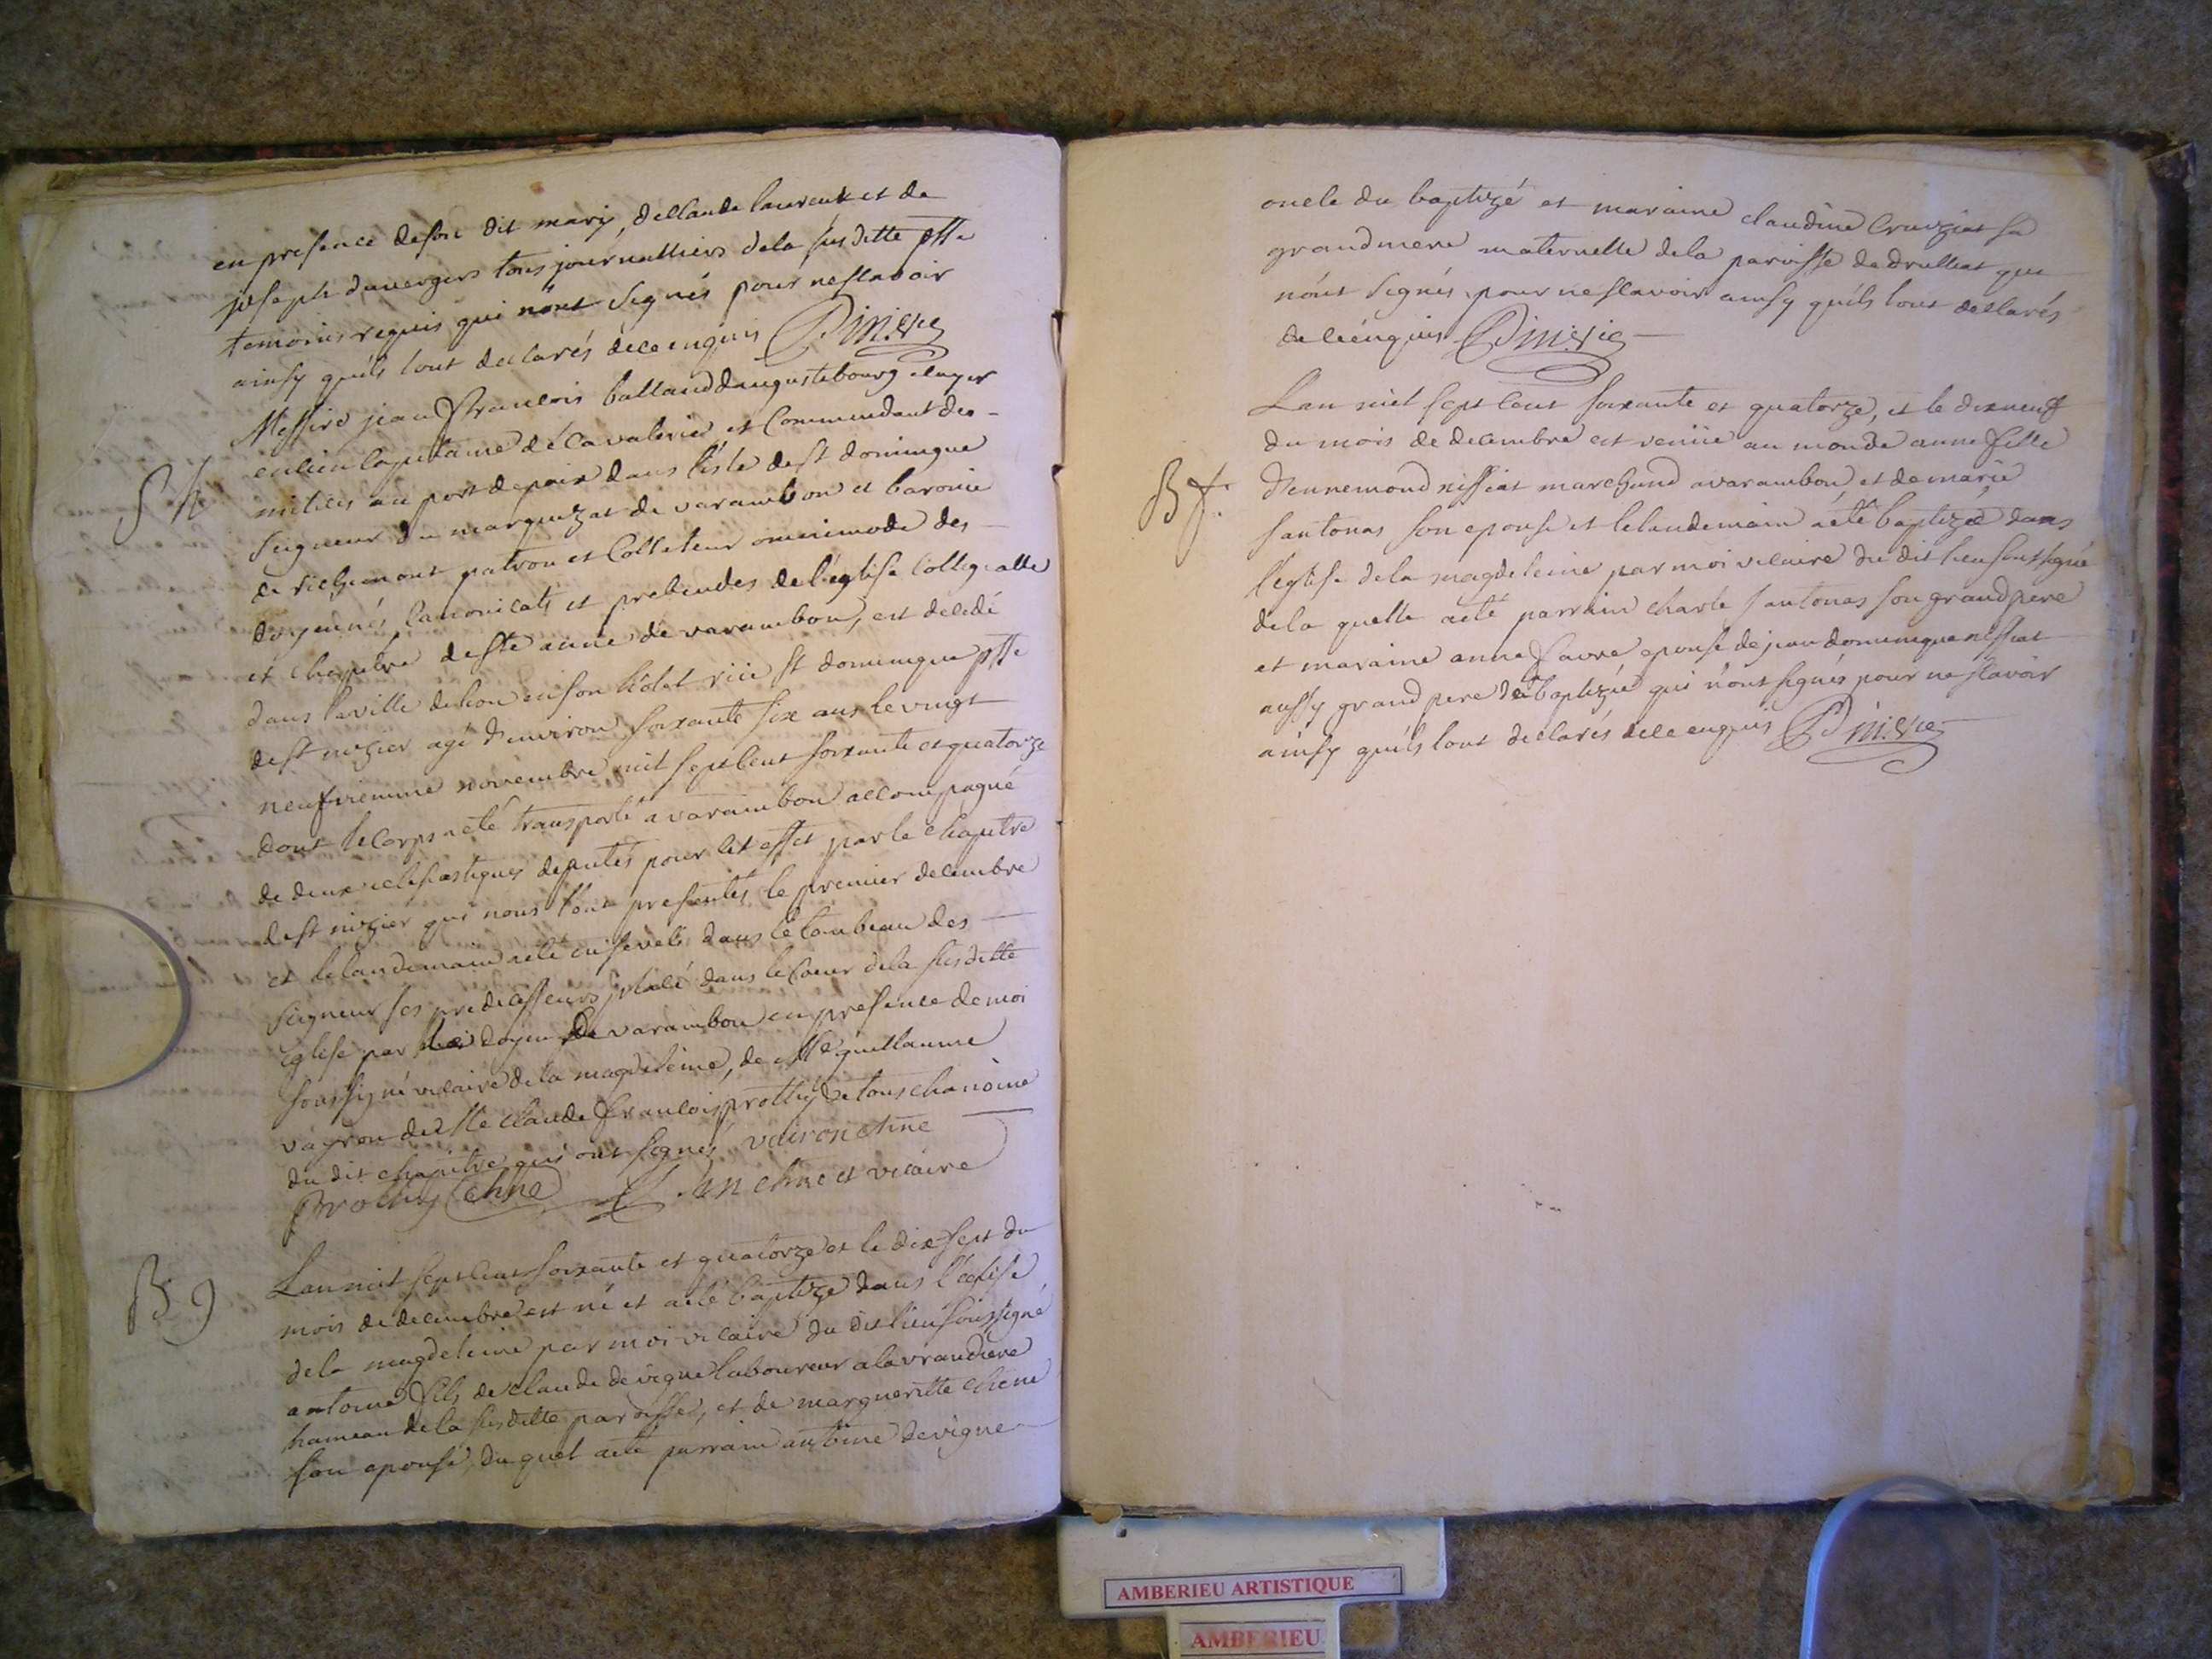 en presence de son dit mary, de claude laurent et de
joseph duverger tous journalliers dela susditte psse
temoins requis qui nont signés pour nesavoir
ainsy quils lont declarés dece enquis
S h
Messire jean François balland daugustebourg ecuyer
encien capitaine de Cavalerie et Commendant des
milices au port depaix dans l'isle de st domingue
seigneur du marquizat de varambon et baronie
de richemont patron et Collateur omnimode des
doyennés, canonicats et prebendes de l'eglise Collegialle
et chapitre de ste anne de varambon, est decedé
dans la ville de lion en son hotel rüe st dominique psse
de st nizier agé d'environ soixante six ans le vingt
neufvieme novembre mil sept cent soixante et quatorze
dont le Corps a eté transporté a varambon accompagné
de deux eclesiastiques deputés pour cet effet par le chapitre
de st nizier qui nous l'ont presentés le premier decembre
et le landemain a eté ensevelis dans le tombeau des
seigneur ses predecesseurs placé dans le Coeur dela susditte
Eglise par doyen de varambon en presence de moi
soussigné vicaire dela magdeleine, de Mre guillaume
vayron de Mre claude François prothy de tous chanoine
du dit chapitre qui ont signés vairon chne
prothy chne chne et vicaire
B g
Lan mil sept cent soixante et quatorze et le dix sept du
mois de decembre est né et a eté baptizé dans l'eglise
dela magdeleine par moi vicaire du dit lieu soussigné
antoine fils de claude devigne laboureur a la vrandiere
hameau dela susditte paroisse, et de margueritte chene
son epouse, du quel a eté parrain antoine devigne
oncle du baptizé et maraine claudine Cruziat sa
grandmere maternelle dela paroisse de druillat qui
nont signés pour nesavoir ainsy quils lont declarés
de ce enquis
B f.
Lan mil sept cent soixante et quatorze, et le dixneuf
du mois de decembre est venüe au monde anne fille
d'ennemond niffiat marchand a varambon et de marie
santonas son epouse et le landemain a eté baptizée dans
l'eglise dela magdeleine par moi vicaire du dit lieu soussigné
dela quelle a eté parrain charle santonas son grandpere
et maraine anne Favre epouse de jean dominique niffiat
aussy grand pere de baptizée qui n'ont signés pour ne savoir
ainsy quils lont declarés dece enquis
AMBERIEU ARTISTIQUE
AMBERIEU